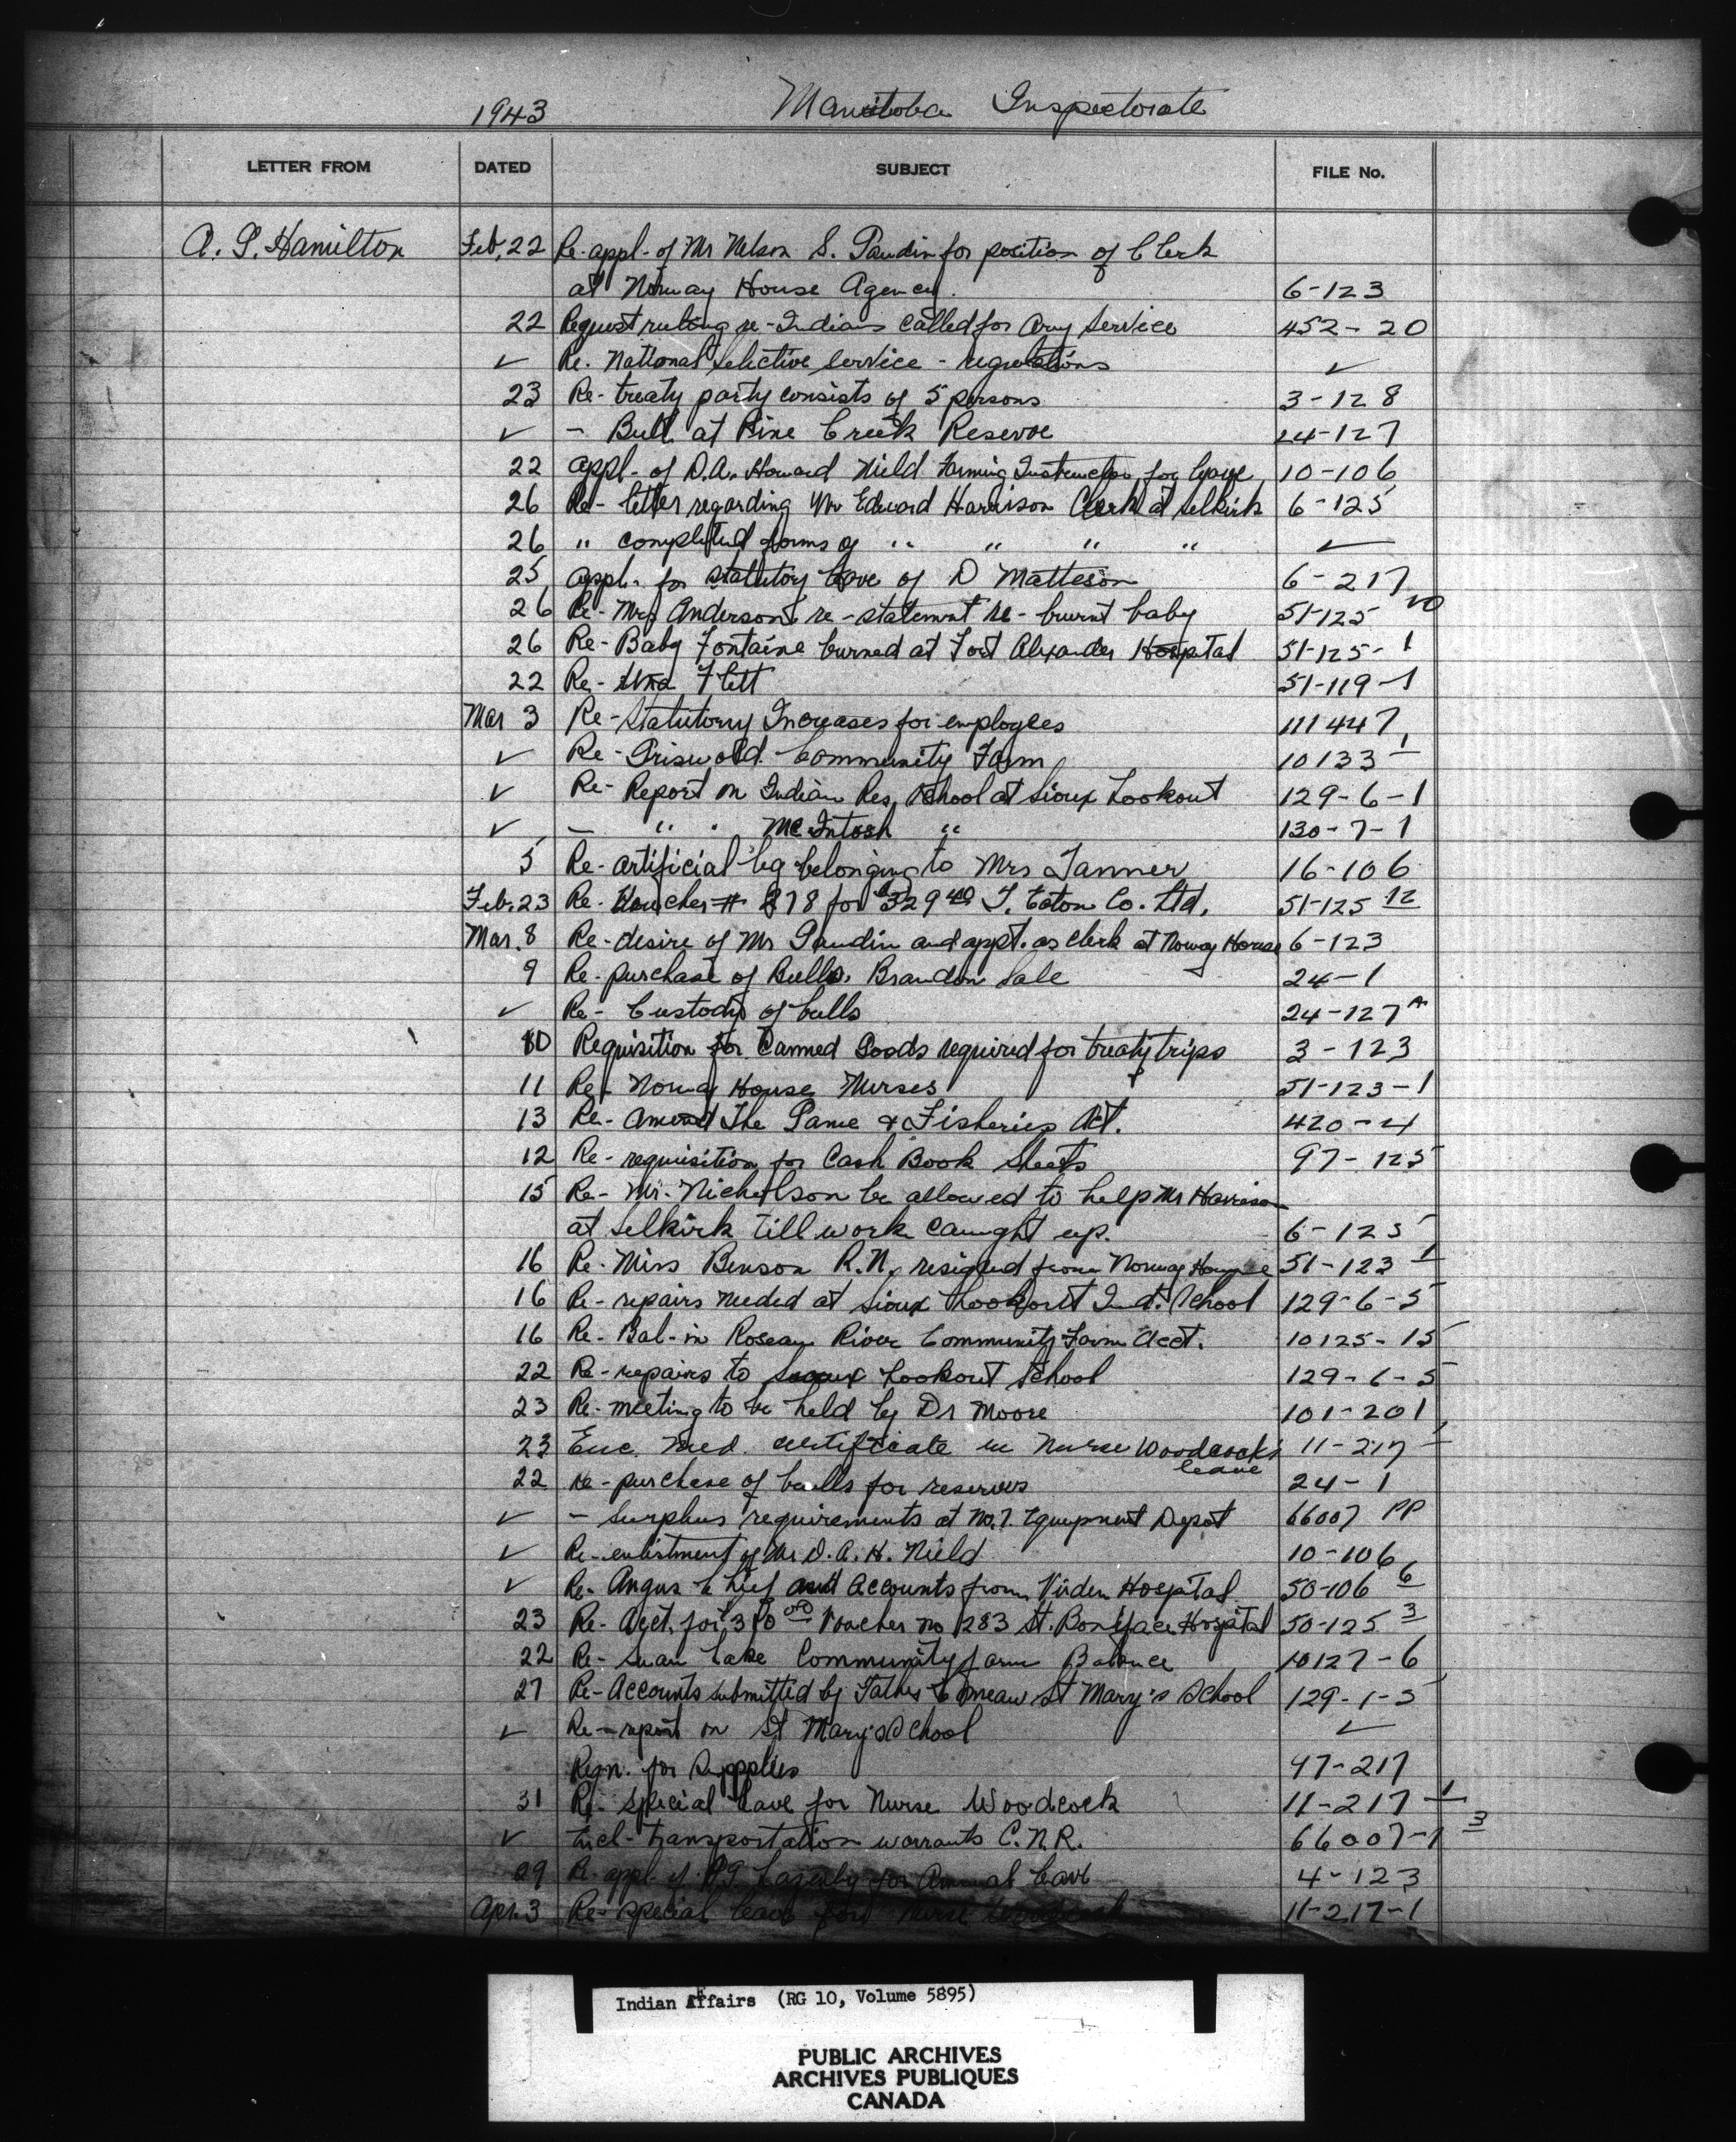 1943 Manitoba Inspectorate
LETTER FROM DATED SUBJECT FILE No.
A. G. Hamilton Feb. 22 Re-appl- of Mr Nelson S. Gaudin for position of Clerk
at Norway House Agency. 6-123
22 Request ruling re-Indians called for Army Service 452-20
✓ Re. National Selective Service - regulations ✓
23 Re-treaty party consists of 5 persons 3-128
✓ - Bull at Pine Creek Reserve 24-127
22 appl- of D.A. Howard Nield Farming Instructor for leave 10-106
26 Re- letter regarding Mr Edward Harrison Clerk at Selkirk 6-125
26 " completed forms of " " " " ✓
25 appl. for statutory leave of D Matteson 6-217
26 Re- Mrs Anderson's re-statement re- burnt baby 51-125 10
26 Re-Baby Fontaine burned at Fort Alexander Hospital 51-125-1
22 Re- Flett 51-119-1
Mar 3 Re-Statutory Increases for employees 111447
✓ Re-Griswold Community Farm 10133 1
✓ Re- Report on Indian Res. School at Sioux Lookout 129-6-1
✓ - " " McIntosh " 130-7-1
5 Re-artificial leg belonging to Mrs Tanner 16-106
Feb. 23 Re-Voucher # 878 for $329 40 T. Eaton Co. Ltd. 51-125 12
Mar. 8 Re-desire of Mr Gaudin and appt. as clerk at Norway House 6-123
9 Re-purchase of Bulls. Brandon Sale 24-1
✓ Re- Custody of bulls 24-127 A
10 Requisition for Canned Goods required for treaty trips 3-123
11 Re- Norway House Nurses 51-123-1
13 Re- Amend The Game & Fisheries Act. 420-4
12 Re-requisition for Cash Book Sheets 97-125
15 Re- Mr. Nicholson be allowed to help Mr Harrison
at Selkirk till work caught up. 6-125
16 Re-Miss Benson R.N. resigned from Norway House 51-123 1
16 Re-repairs needed at Sioux Lookout Ind. School 129-6-5
16 Re-Bal-in Roseau River Community Farm acct. 10125-15
22 Re-repairs to Sioux Lookout School 129-6-5
23 Re-meeting to be held by Dr Moore 101-201
23 Enc. med. certificate re Nurse Woodcock's leave 11-217 1
22 re-purchase of bulls for reserves 24-1
✓ - Surplus requirements at No. 7. Equipment Depot 66007 PP
✓ Re-enlistment of Mr D. A. H. Nield 10-106
✓ Re-Angus Chief and Accounts from Virden Hospital 50-106 6
23 Re-Acct. for Voucher no 1283 St. Boniface Hospital 50-125 3
22 Re- Swan Lake Community farm Balance 10127-6
27 Re-Accounts submitted by Father Comeau St Mary's School 129-1-5
✓ Re-report on St Mary's School ✓
Reqn. for Supplies 97-217
31 Re-special leave for Nurse Woodcock 11-217-1
✓ Encl-transportation warrants C.N.R. 66007-1 3
29 Re appl. of for Annual leave 4-123
Apr. 3 Re-special leave for Nurse Woodcock 11-217-1
Indian Affairs (RG 10, Volume 5895)
PUBLIC ARCHIVES
ARCHIVES PUBLIQUES
CANADA